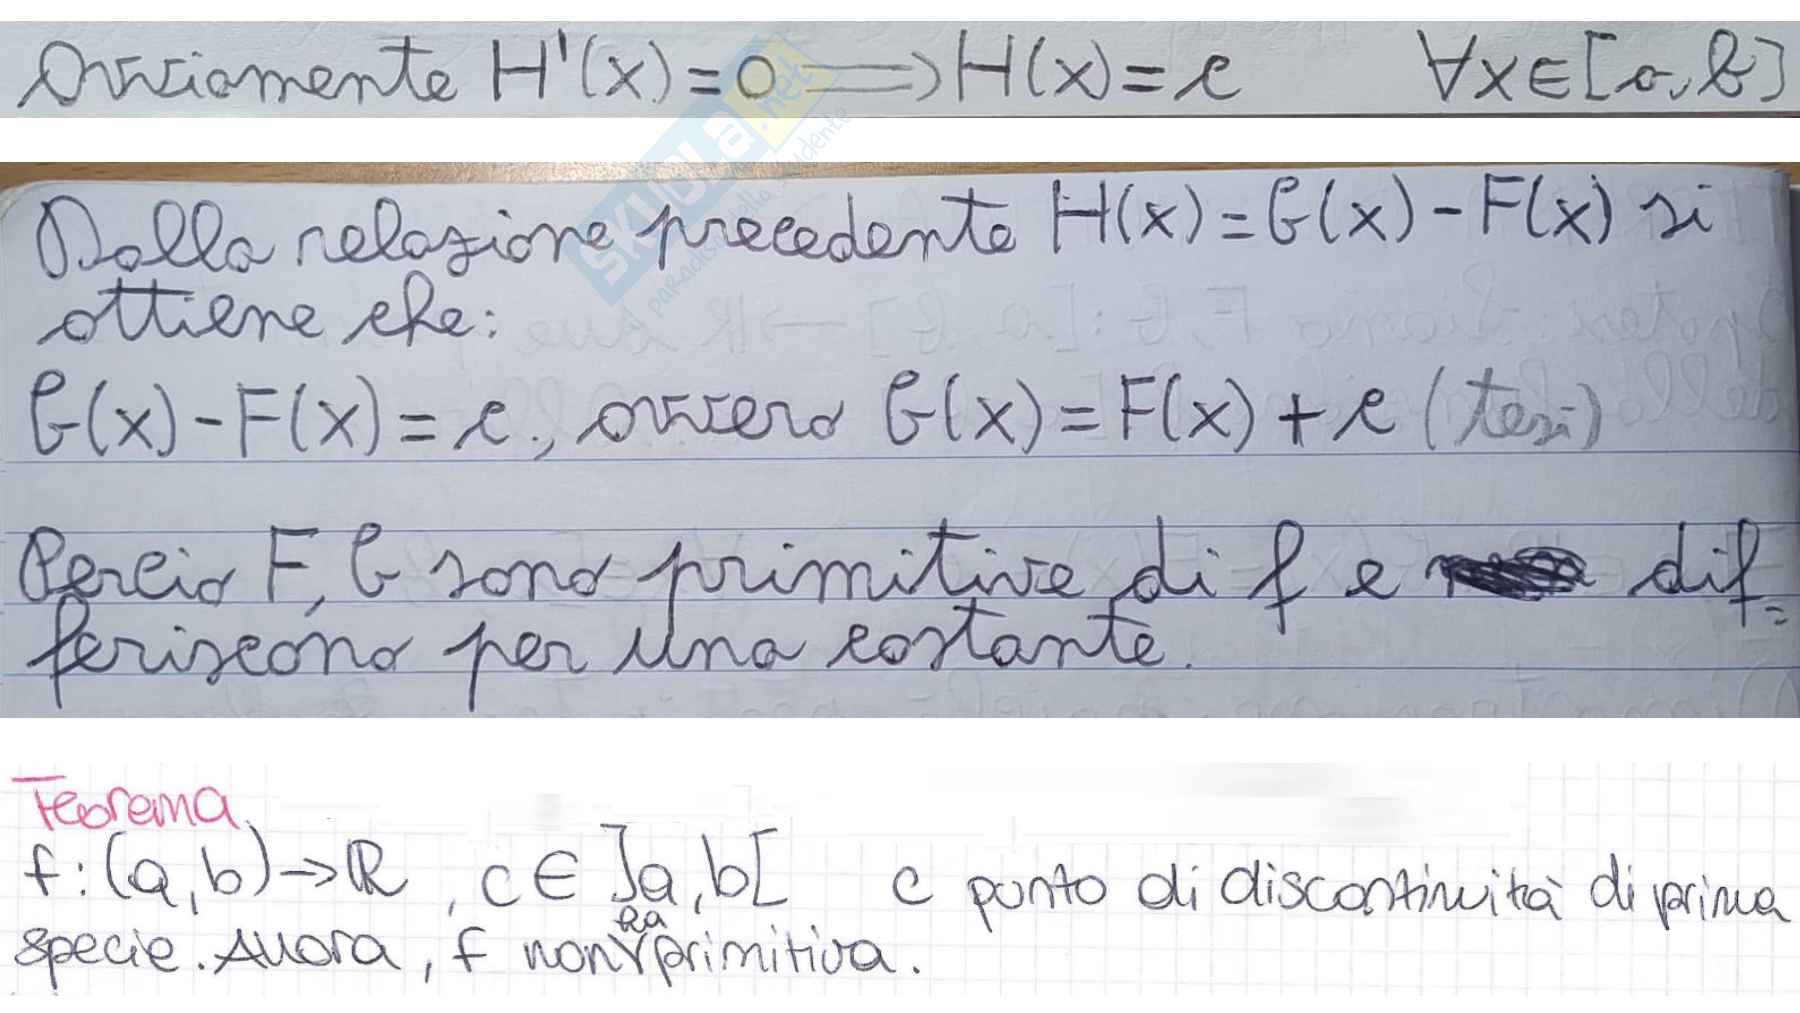 Ovviamente H'(x)=0 ⟹ H(x)=c ∀x∈[a,b]
Dalla relazione precedente H(x)=G(x)-F(x) si
ottiene che:
G(x)-F(x)=c, ovvero G(x)=F(x)+c (tesi)
Perciò F, G sono primitive di f e dif=
feriscono per una costante.
Teorema
f:(a,b)→ℝ, c∈]a,b[ c punto di discontinuità di prima
specie. Allora, f non ha primitiva.
SKUOLA.net